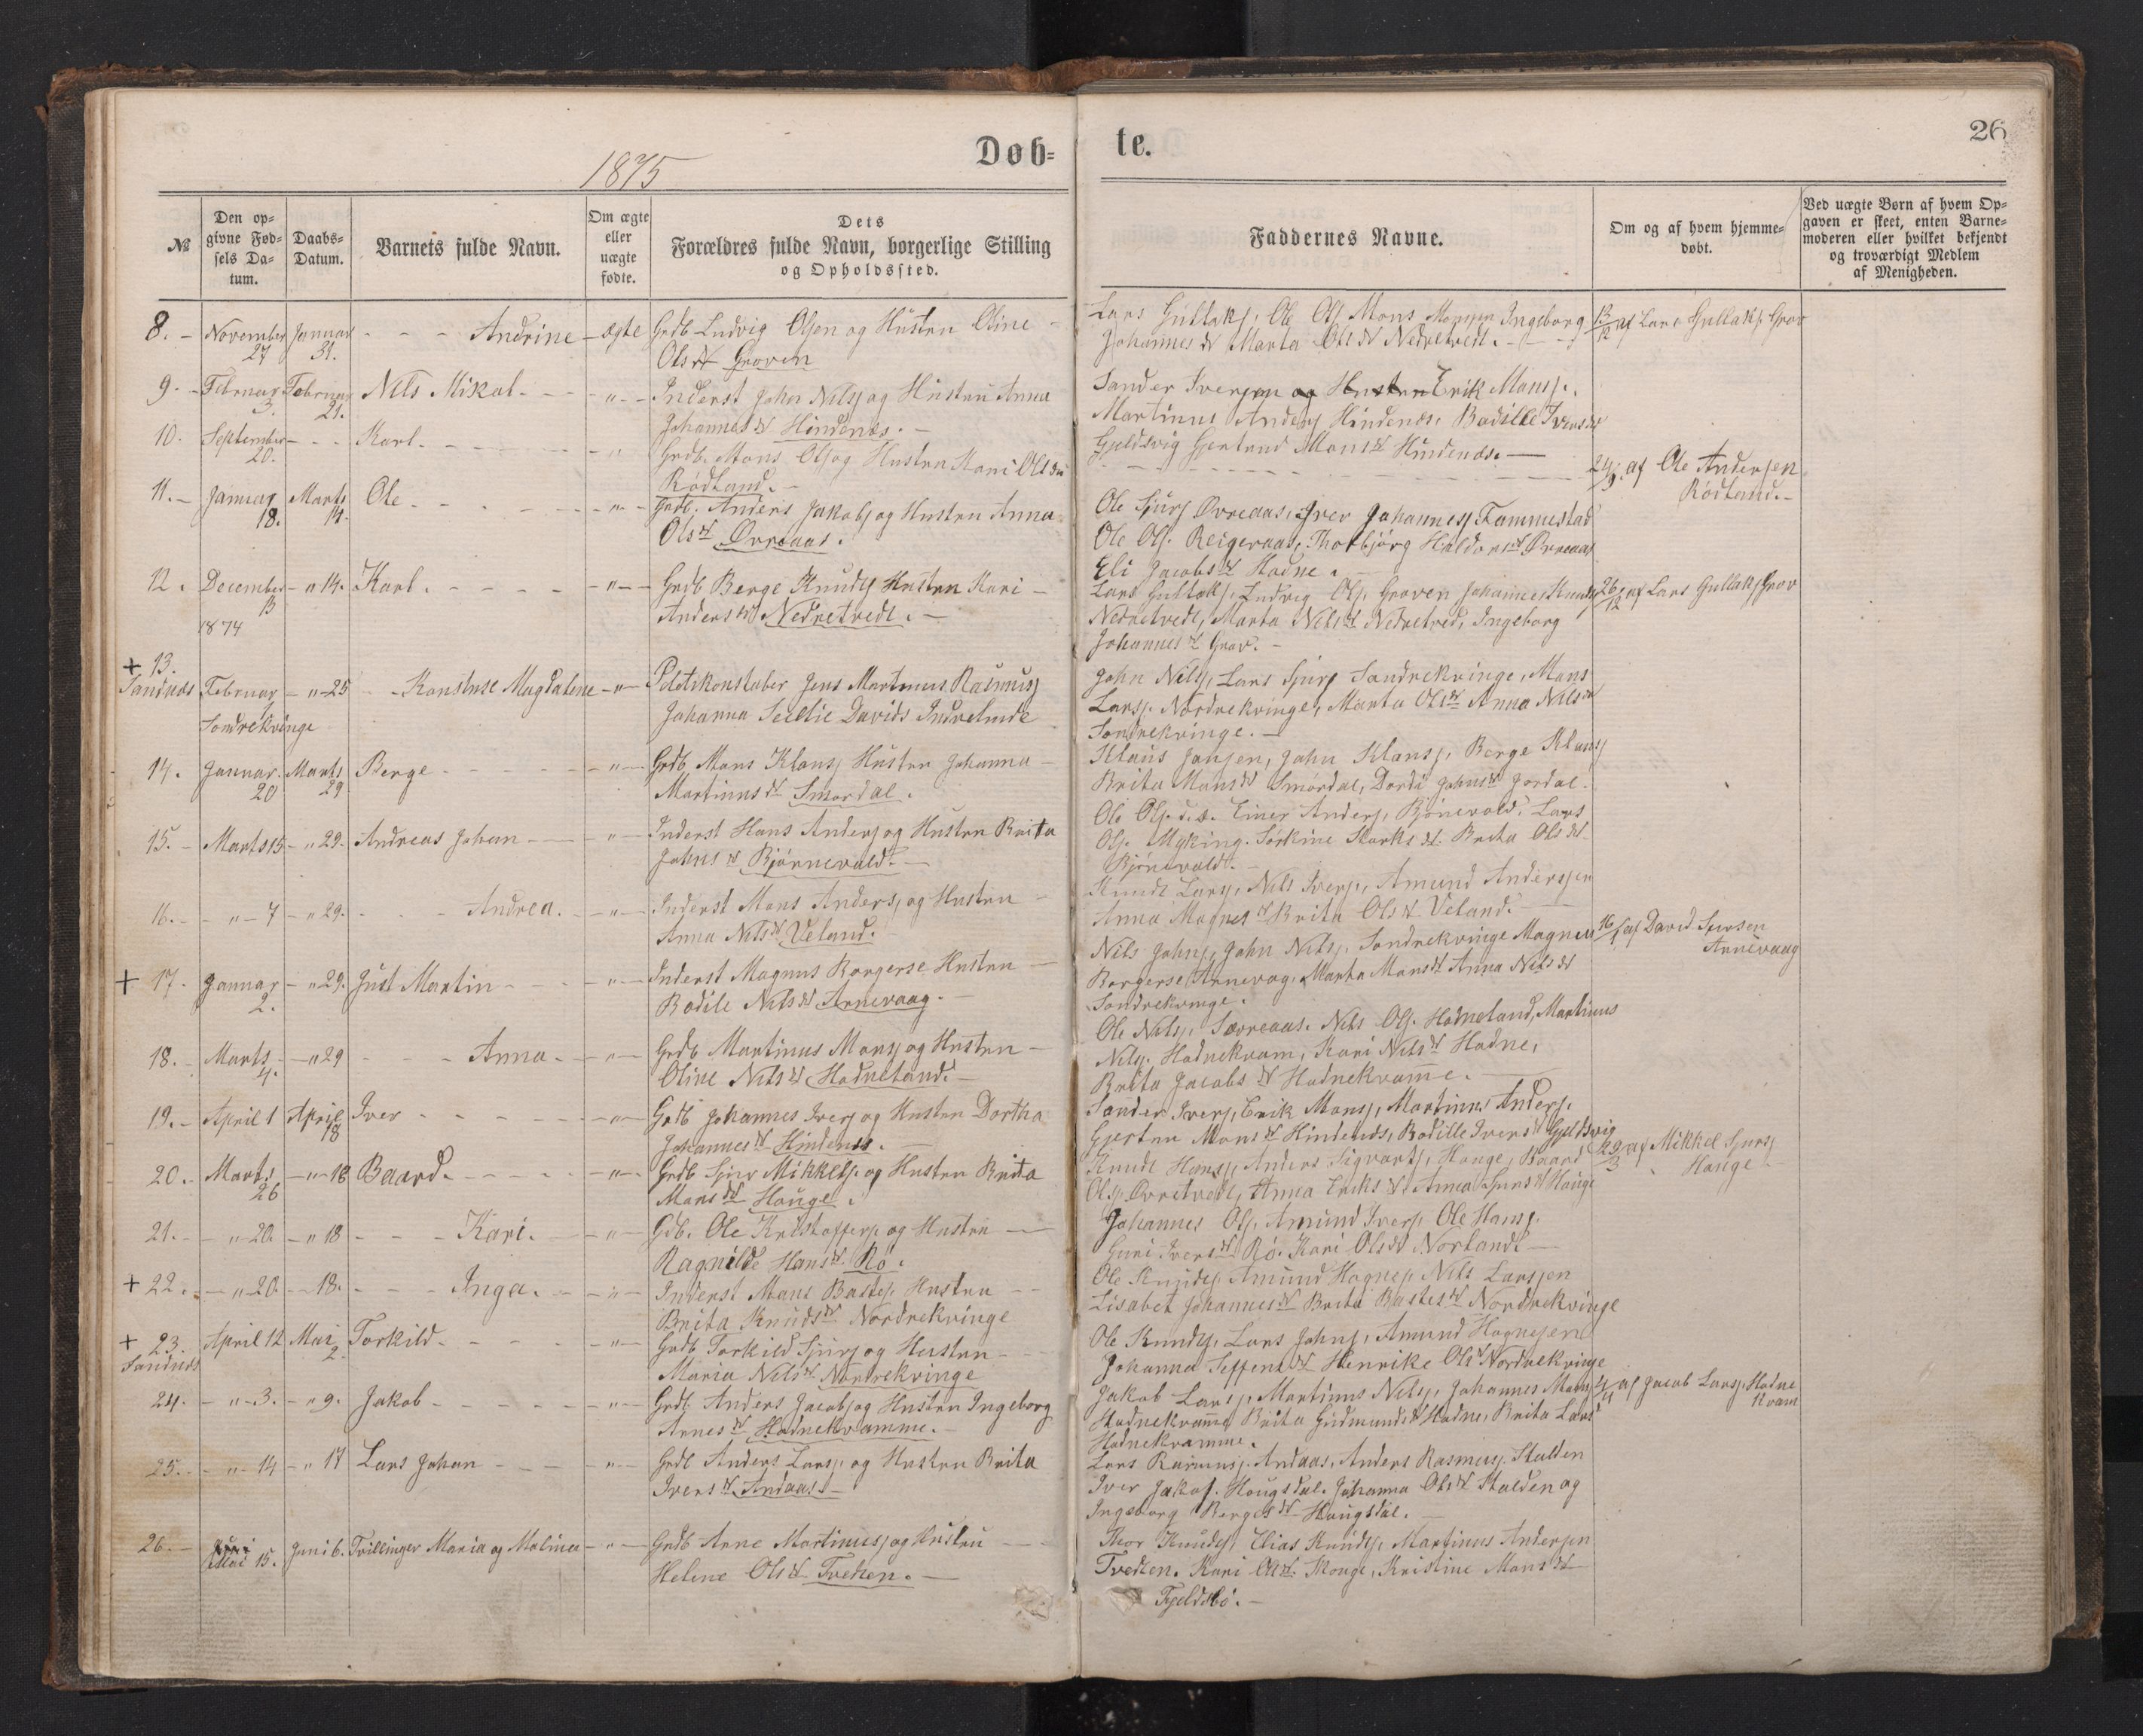 1875
Døb=
te.
26
№
Den op=
givne Fød=
sels Da=
tum.
Daabs=
Datum.
Barnets fulde Navn.
Om ægte
eller
uægte
fødte.
Dets
Forældres fulde Navn, borgerlige Stilling
og Opholdssted.
Faddernes Navne.
Om og af hvem hjemme=
døbt.
Ved uægte Børn af hvem Op=
gaven er skeet, enten Barne=
moderen eller hvilket bekjendt
og troværdigt Medlem
af Menigheden.
8. November 27 Januar 31. Andrine ægte Grdb Ludvig Olsen og Hustru Oline
Olsdt Groven
Lars Gullaks. Ole Ols. Mons Monsen Ingeborg
Johannesdt Marta Olsdt Nedretvedt.
13/12 af Lars Gullaks. Grov
9. Februar 3. Februar 21. Nils Mikal Inderst John Nilss og Hustru Anna
Johannesdt Hindenes.
Sander Iversen og Hustru Erik Monss.
Martinus Anderss Hindenes. Bodille Iversdt
Gjeldsvig Gjertrud Monsdt Hindenæs.
10. September 20. Karl. Grdb. Mons Ols og Hustru Kari Olsdt
Rødland.
24/9 af Ole Andersen
Rødland.
11. Januar 18. Marts 14. Ole Grdb. Anders Jakobs og Hustru Anna
Olsdt Øvreaas.
Ole Sjurs Øvreaas, Iver Johanness Fammestad
Ole Ols. Reigeraas, Thorbjørg Haldorsdt Øvreaas
Eli Jacobsdt Hodne.
12. December 13 1874 " 14. Karl. Grdb Berge Knuds Hustru Kari
Andersdt Nedretvedt.
Lars Gullaks. Ludvig Ols. Groven Johannes Knuds
Nedretvedt, Marta Nilsdt Nedretvedt, Ingeborg
Johannesdt Grov.
26/12 af Lars Gullaks Grov
+ 13.
Sandnes Februar 7 " 25 Konstuse Magdalene " Politikonstaber Jens Martinus Rasmuss
Søndrekvinge
Johanna Davids Indrelunde
John Nilss, Lars Sjurs Søndrekvinge, Mons
Larss. Nordrekvinge, Marta Olsdt Anna Nilsdt
Søndrekvinge.
14. Januar. 20 Marts 29 Berge Grdb Mons Klauss Hustru Johanna
Martinusdt Smørdal.
Klaus Jansen, John Klauss, Berge Klauss
Brita Monsdt Smørdal, Dordi Johnsdt Jordal.
15. Marts 15 " 29. Andreas Johan " Inderst Hans Anderss og Hustru Brita
Johnsdt Bjørnevold.
Ole Ols. d.s. Einer Anderss, Bjønevold, Lars
Ols. Myking. Sørkine Larsdt. Brita Olsdt
Bjønevold.
16. " 7 " 29. Andrea. Inderst Mons Anderss og Hustru
Anna Nilsdt Veland.
Knudt Larss, Nils Iverss, Amund Andersen
Anna Magnesdt Brita Olsdt Veland.
+ 17. Januar 2. " 29. Just Martin Inderst Magnus Borgerse Hustru
Bodile Nilsdt Arnevaag.
Nils Johns, John Nilss, Søndrekvinge Magnus
Borgerse Arnevog. Marta Monsdt Anna Nilsdt
Søndrekvinge.
16/1 af David
Arnevaag
18. Marts 4. " 29 Anna Grdb Martinus Monss og Hustru
Oline Nilsdt Hodneland.
Ole Nilss, Sævreaas. Nils Ols. Hodneland, Martinus
Nilss. Hodnekvam, Kari Nilsdt Hodne,
Brita Jacobsdt Hodnekvamme.
19. April 1 April 18 Iver Grdb Johannes Iverss og Hustru Dortha
Johannesdt Hindenes.
Sander Iverss, Erik Monss, Martinus Anderss.
Gjertru Monsdt Hindenæs, Bodille Iversdt Gjeldsvig
20. Marts 26 " 18 Baard. Grdb Sjur Mikkels. og Hustru Brita
Monsdt Hauge.
Knudt Hanss, Anders Sigvarts, Hauge, Baard
Ols. Øvretvedt, Anna Eriksdt Anna Sjursdt Hauge
29/3 af Mikkel Sjurs
Hauge
21. " 20. " 18 Kari. Gdb. Ole Kristoffers og Hustru
Ragnilde Hansdt Rø.
Johannes Ols, Amund Iverss Ole Hanss.
Guri Iversdt Rø. Kari Olsdt Norland.
+ 22. " 20. 18. Inga. Inderst Mons Bastes. Hustru
Brita Knudsdt Nordrekvinge
Ole Knuds. Amund Hagnes, Nils Larssen
Lisabet Johannesdt Brita Bastesdt Nordrekvinge
+ 23. April 12 Mai 2. Torkild. Grdb Torkild Sjurs og Hustru
Sandnes
Maria Nilsdt Nordrekvinge
Ole Knuds, Lars Johns, Amund Hagnesen
Johanna Seffensdt Henrike Olsdt Nordrekvinge
24. " 3. " 9. Jakob Grdb Anders Jacobs og Hustru Ingeborg
Arnesdt Hodnekvamme.
Jakob Larss, Martinus Nilss, Johannes Mons
Hodnekvamme Brita Gudmundsdt Hodne, Brita Larsdt
Hodnekvamme.
af Jacob Larss, Hodne
kvam
25. " 14 " 17 Lars Johan Grdb Anders Larss, og Hustru Brita
Iversdt Andaas.
Lars Rasmuss. Andaas, Anders Rasmuss. Stalden
Iver Jakos. Hougsdal. Johanna Olsdt Stalden og
Ingeborg Bergesdt Hougsdal.
26. Mai 15. Juni 6. Tvillinger Maria og Malina Grdb Arne Martinuss og Hustru
Helene Olsdt Tvedten.
Thor Knuds, Elias Knuds, Martinus Andersen
Tvedten. Kari Olsdt. Skouge, Kristine Monsdt
Fjeldsbø.